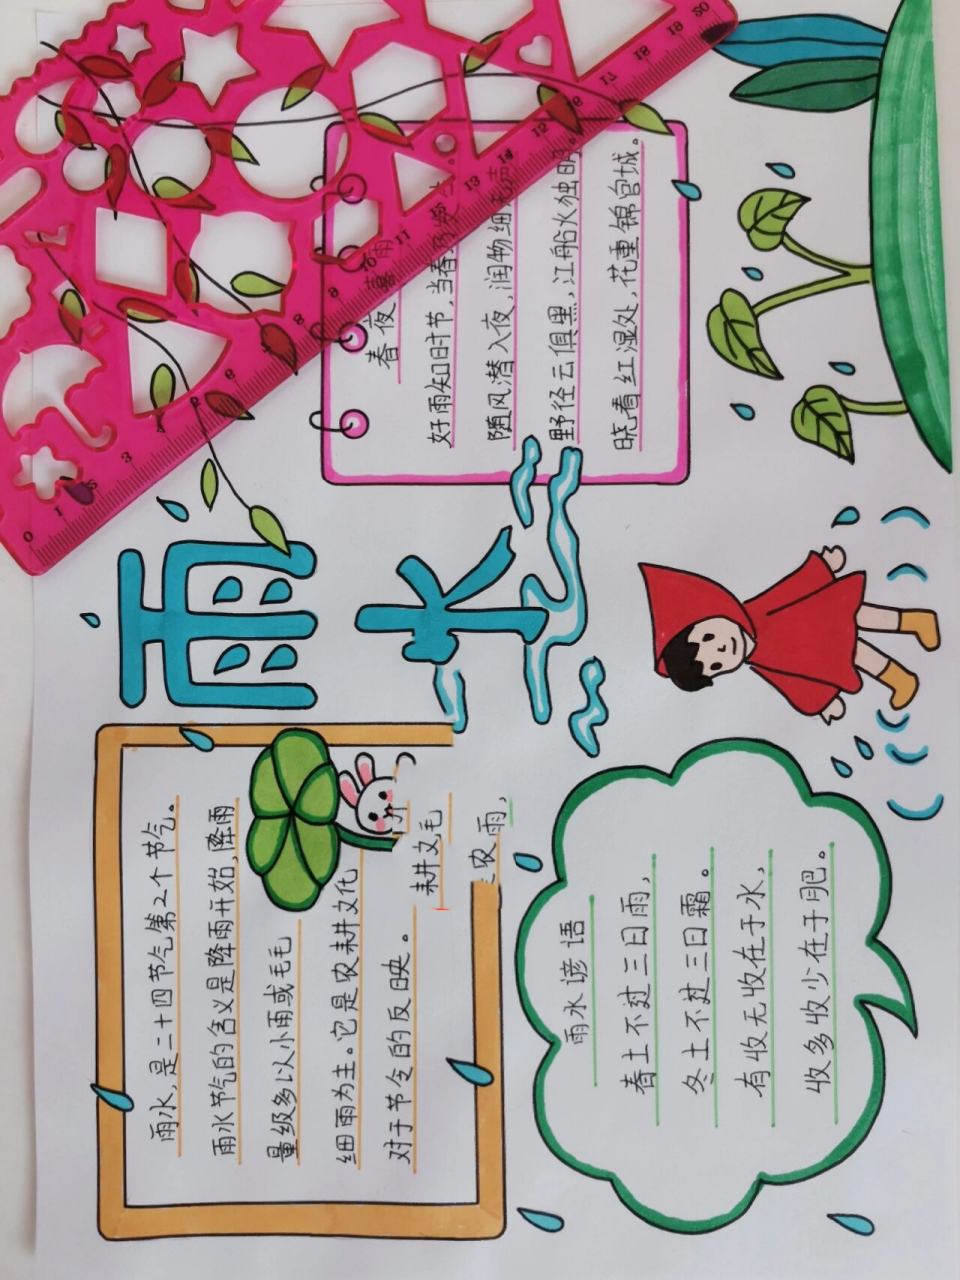 雨水
雨水,是二十四节气第2个节气。
雨水节气的含义是降雨开始,降雨
量级多以小雨或毛毛
细雨为主。它是农耕文化
对于节令的反映。
耕文毛
农雨,
春夜喜雨
好雨知时节,当春乃发
随风潜入夜,润物细
野径云俱黑,江船火独明
晓看红湿处,花重锦官城。
雨水谚语
春土不过三日雨,
冬土不过三日霜。
有收无收在于水,
收多收少在于肥。